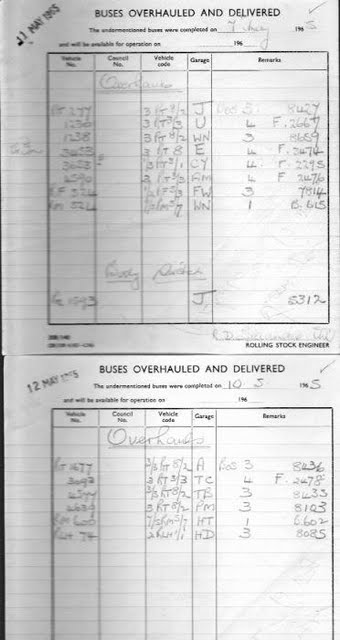 11 MAY 1965
BUSES OVERHAULED AND DELIVERED
The undermentioned buses were completed on 7 May 1965
and will be available for operation on 196
Vehicle No. Council No. Vehicle code Garage Remarks
Overhauls
RT 277 3 RT 8/2 J Bos 3 8427
1230 3 RT 3/3 U 4 F. 2667
1238 3 RT 8/2 WN 3 8659
3453 3 RT 8 E 4 F. 2474
3053 3 RT 3/1 CY 4 F. 2295
4590 3 RT 3/3 F 2476
RF 524 FW 3 7814
RM 521 WN 1 B. 615
Body Switch
1593 J 5312
ROLLING STOCK ENGINEER
12 MAY 1965
BUSES OVERHAULED AND DELIVERED
The undermentioned buses were completed on 10 5 1965
and will be available for operation on 196
Vehicle No. Council No. Vehicle code Garage Remarks
Overhauls
RT 1677 3/3 RT 8/2 A Bos 3 8436
3093 3 RT 3/3 TC 4 F. 2478
4577 3/3 RT 8/2 TB 3 8433
2639 3 RT 8/2 PM 3 8103
RM 600 7/2 RM 5/7 HT 1 B.602
RLH 74 2 RLH 1/1 HD 3 8085